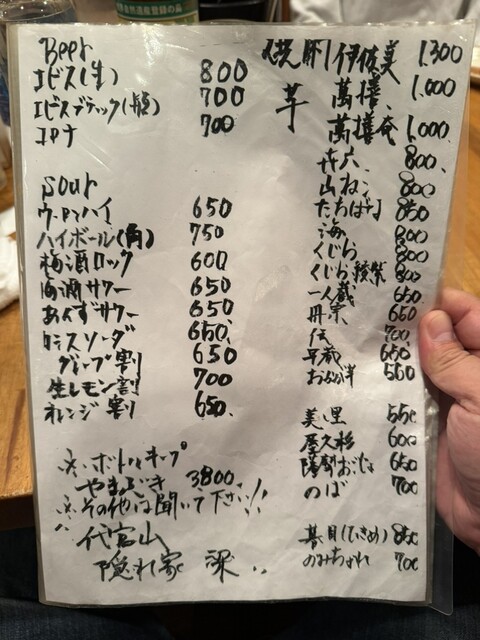 Beer
エビス(生) 800
エビスブラック(瓶) 700
コロナ 700
Sour
ウーロンハイ 650
ハイボール(角) 750
梅酒ロック 600
梅酒サワー 650
あんずサワー 650
カシスソーダ 650
グレープ割 650
生レモン割 700
オレンジ割 650
※ボトルキープ
やまぶき 3800
※その他は聞いて下さい!!
代官山
隠れ家 梁
焼酎 伊佐美 1,300
芋 萬膳 1,000
萬膳庵 1,000
㐂六 800
山ねこ 800
たちばな 850
海 800
くじら 800
くじら綾紫 800
一人蔵 650
丹宗 650
伝 700
平蔵 650
550
美里 550
屋久杉 600
薩摩おごじょ 650
のば 700
蟇目(ひきめ) 850
のみちょれ 700